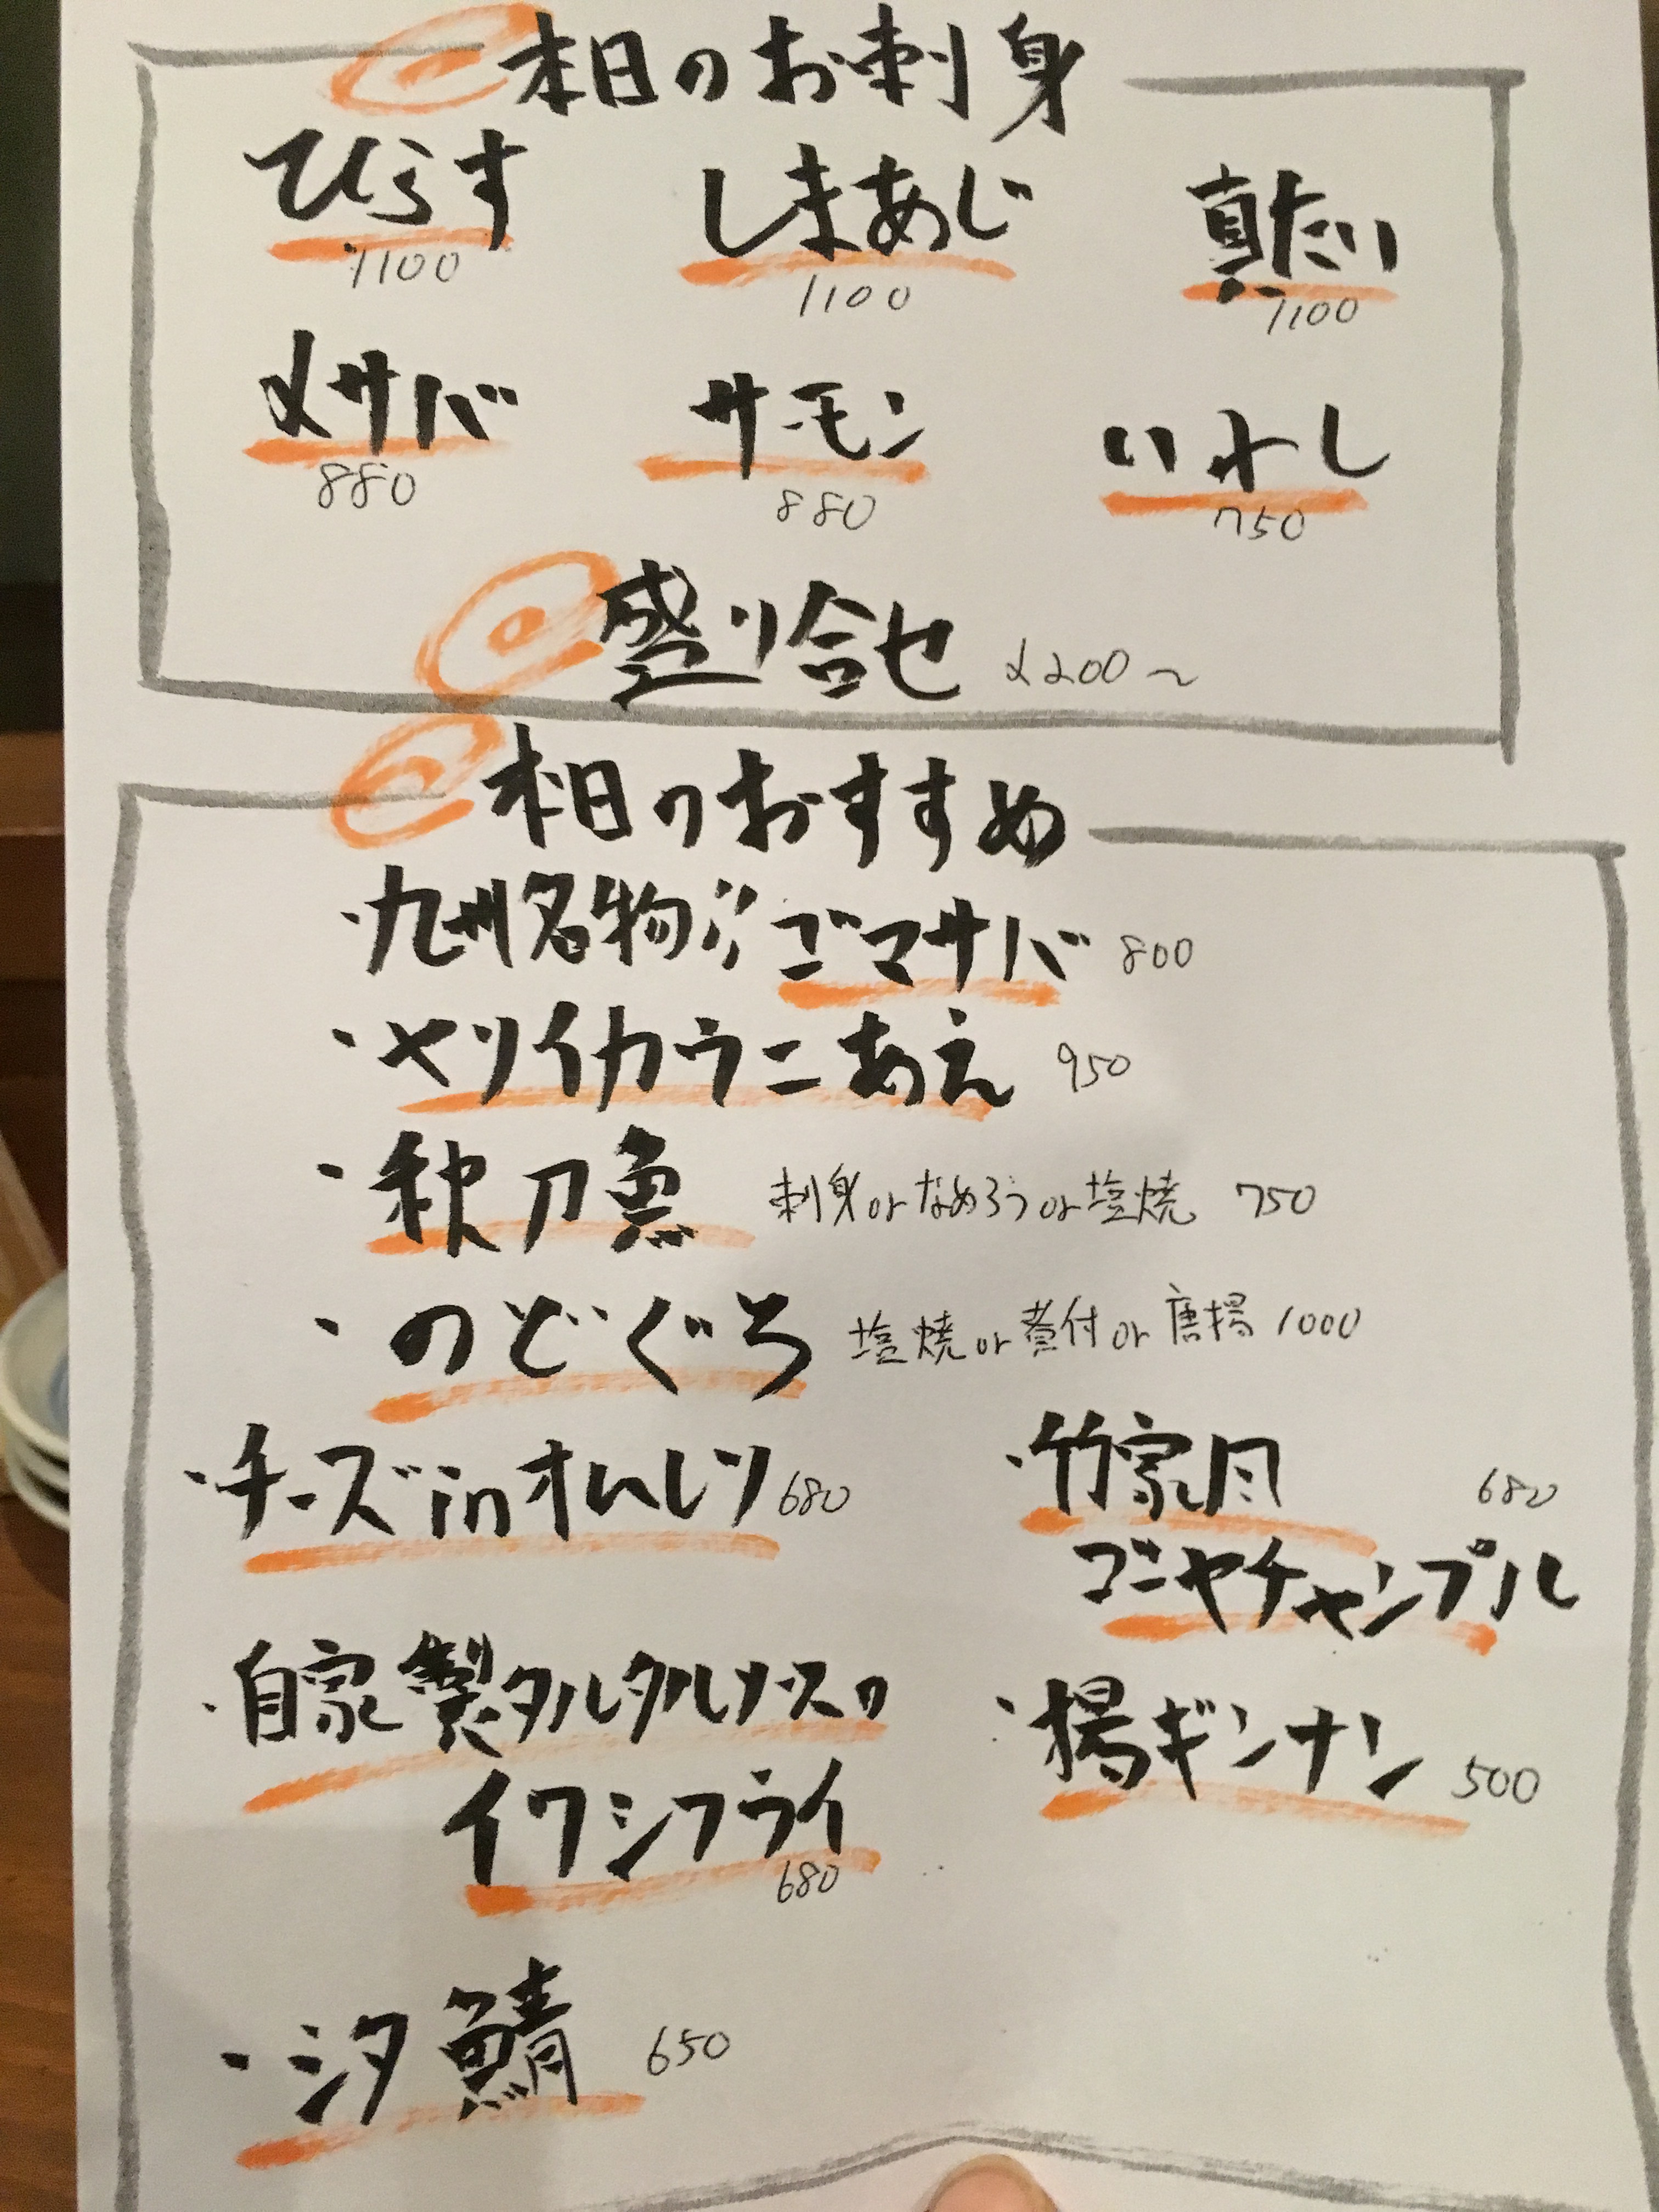 本日のお刺身
ひらす しまあじ 真たい
1100 1100 1100
〆サバ サーモン いわし
880 880 750
盛り合せ 2200〜
本日のおすすめ
・九州名物!! ごマサバ 800
・ヤリイカウニあえ 950
・秋刀魚 刺身orなめろうor塩焼 750
・のどぐろ 塩焼or煮付or唐揚 1000
・チーズinオムレツ 680
・竹家風 680
ゴーヤチャンプル
・自家製タルタルソースの
イワシフライ
680
・揚ギンナン 500
・汐鯖 650